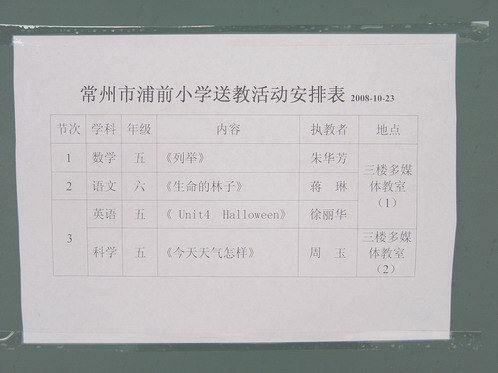 常州市浦前小学送教活动安排表 2008-10-23
节次 学科 年级 内容 执教者 地点
1 数学 五 《列举》 朱华芳 三楼多媒体教室（1）
2 语文 六 《生命的林子》 蒋 琳
3 英语 五 《 Unit4 Halloween》 徐丽华
科学 五 《今天天气怎样》 周 玉 三楼多媒体教室（2）